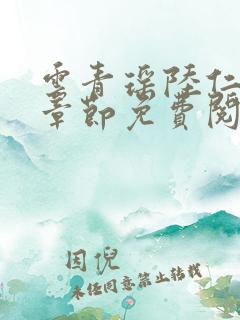 云青瑶陆仁
章节免费阅
因倪
未经同意禁止转载